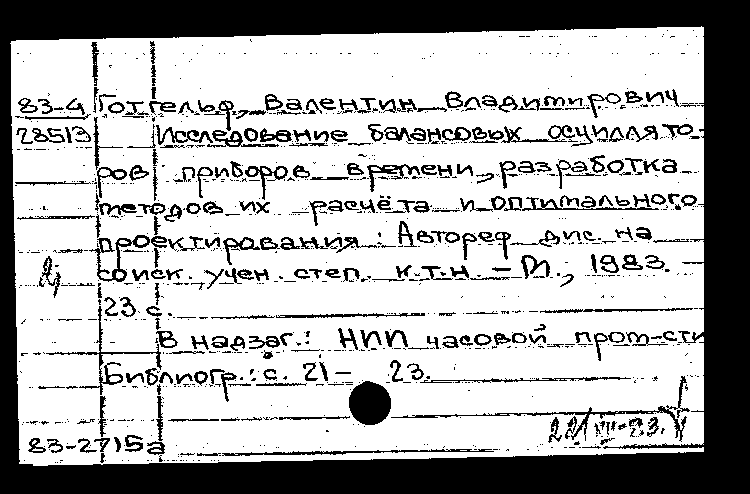 83-4 Готгельф, Валентин Владимирович
28513 Исследование балансовых осциллято-
ров приборов времени, разработка
методов их расчёта и оптимального
проектирования: Автореф дис. на
соиск. учен. степ. к.т.н. - М., 1983. -
23 с.
В надзаг.: НИИ часовой пром-сти
Библиогр.: с. 21 - 23.
83-2715а 22/VII-83.